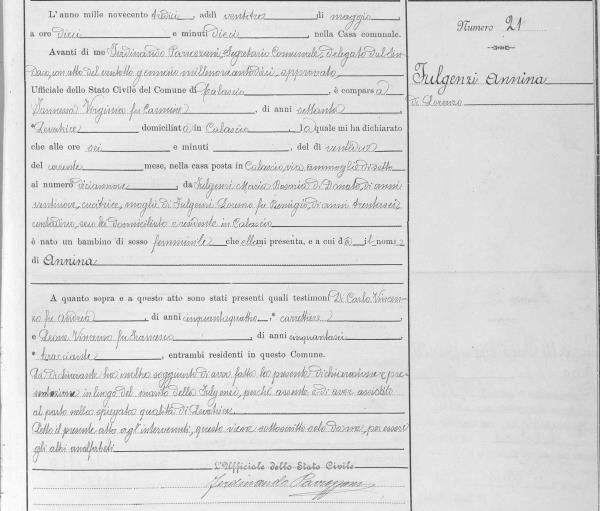 L'anno mille novecento tredici, addì ventitre di maggio,
a ore dieci e minuti dieci, nella Casa comunale.
Avanti di me Ferdinando Segretario Comunale, delegato dal Sin-
daco, con atto del ventotto gennaio millenovecentodieci, approvato,
Uffiziale dello Stato Civile del Comune di Calascio, è comparsa
Virginia fu Carmine, di anni settanta,
Levatrice domiciliata in Calascio, la quale mi ha dichiarato
che alle ore sei e minuti, del dì ventidue
del corrente mese, nella casa posta in Calascio, via di sotto
al numero diciannove, da Fulgenzi Maria Rosaria di Donato, di anni
ventinove, cucitrice, moglie di Fulgenzi Lorenzo fu Remigio, di anni trentasei
contadino, seco lui domiciliata e residente in Calascio
è nato un bambino di sesso femminile che ella mi presenta, e a cui dà il nome
di Annina
A quanto sopra e a questo atto sono stati presenti quali testimoni Di Carlo Vincen-
zo fu Andrea, di anni cinquantaquattro, carrettiere,
e Leone Vincenzo fu Francesco, di anni cinquantasei
bracciante, entrambi residenti in questo Comune.
La dichiarante ha inoltre soggiunto di aver fatto la presente dichiarazione e pre-
sentazione in luogo del marito della Fulgenzi, perchè assente e di aver assistito
al parto nella spiegata qualità di Levatrice.
Letto il presente atto agl'intervenuti, questo viene sottoscritto solo da me, per essere
gli altri analfabeti.
L'Uffiziale dello Stato Civile
Ferdinando
Numero 21
Fulgenzi Annina
di Lorenzo